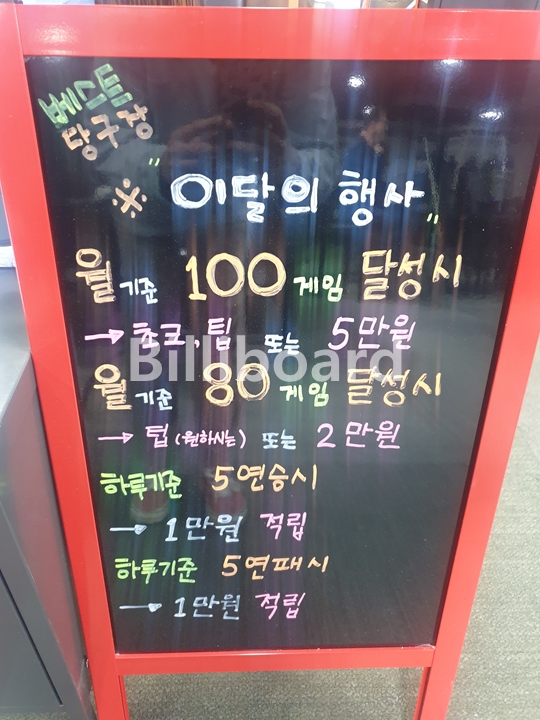 베스트
당구장
"※ 이달의 행사"
월기준 100게임 달성시
→ 초크, 팁 또는 5만원
Billiboard
월기준 80게임 달성시
→ 팁 (원하시는) 또는 2만원
하루기준 5연승시
→ 1만원 적립
하루기준 5연패시
→ 1만원 적립